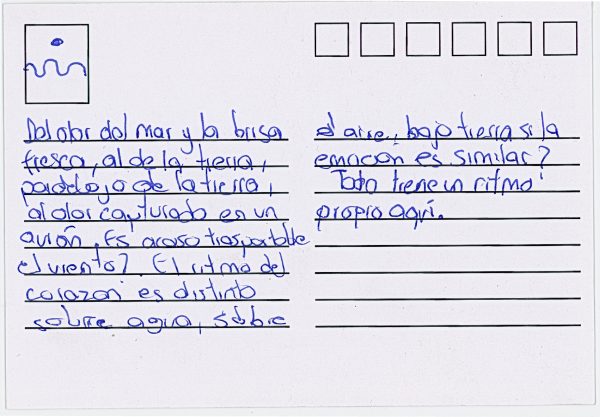 Del olor del mar y la brisa
fresca, al de la tierra,
paradojo de la tierra,
al olor capturado en un
avión, Es acaso trasportable
el viento?. El ritmo del
corazón es distinto
sobre agua, sobre
el aire, bajo tierra si la
emoción es similar?
Todo tiene un ritmo
propio aquí.